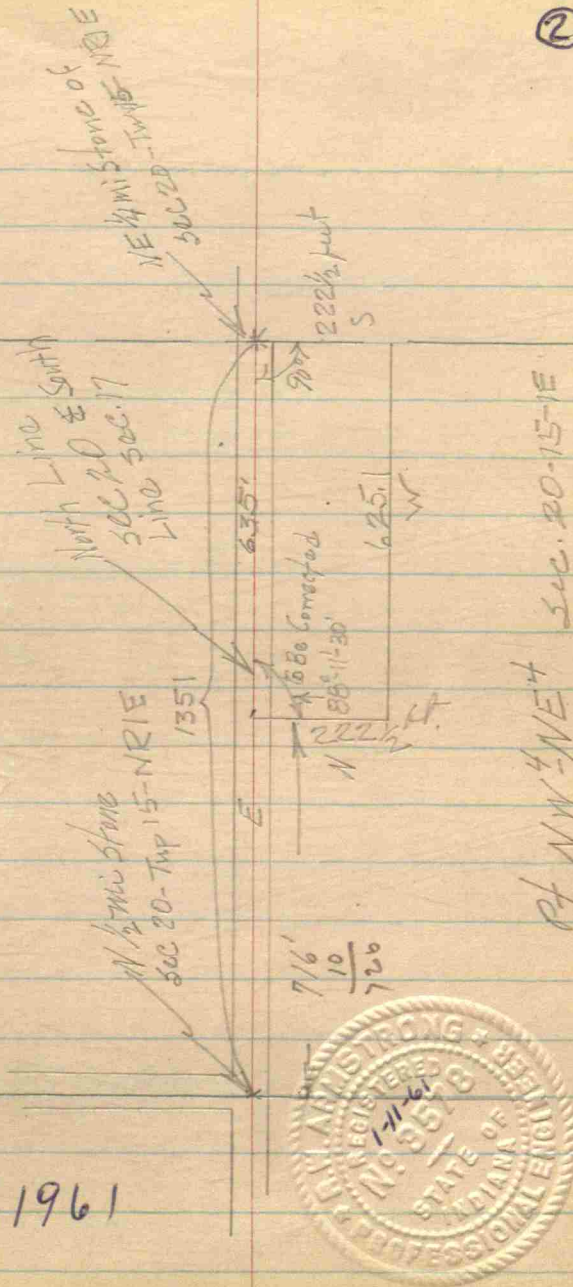 ②
NE 1/4 mi Stone of
Sec 20-Twp 15-NR1E
North Line
Sec 20 & South
Line Sec. 17
N 1/2 mi Stone
Sec 20-Twp 15-NR1E
1351
E
635'
90°
222 1/2 feet
S
Corrected
88°-11'-30"
222 1/2 ft.
N
625.1
W
716'
10
726
Pt NW 4-NE 4 Sec. 20-15-1E
1961
ARMSTRONG
REGISTERED
1-11-61
No
STATE OF
INDIANA
PROFESSIONAL ENGINEER